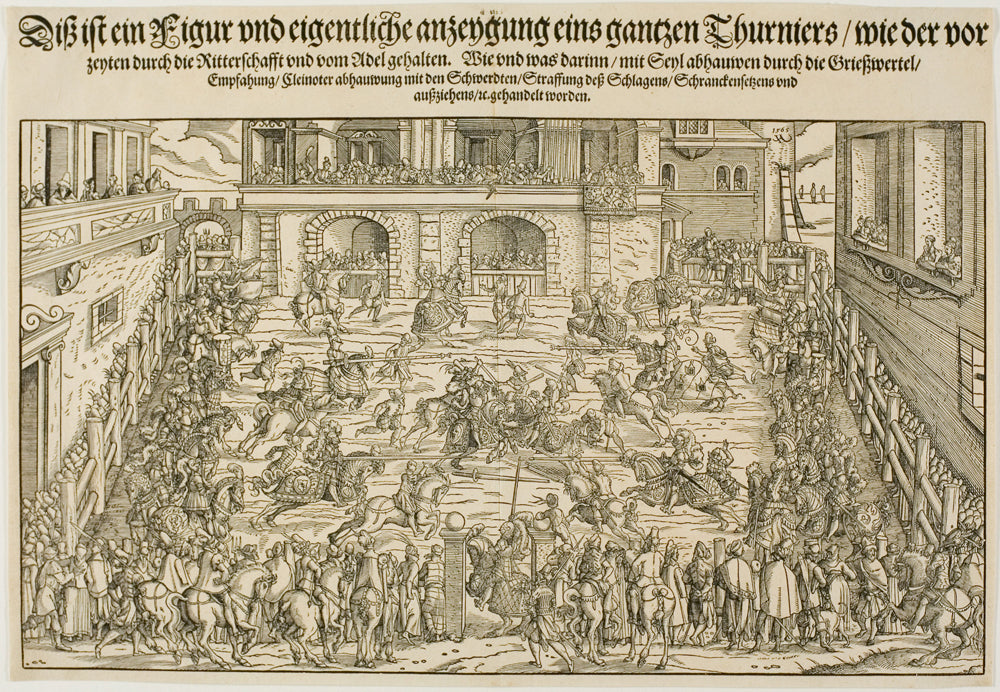 Diß ist ein Figur vnd eigentliche anzeygung eins gantzen Thurniers / wie der vor
zeyten durch die Ritterschafft vnd vom Adel gehalten. Wie vnd was darinn / mit Seyl abhauwen durch die Grießwertel /
Empfahung / Cleinoter abhauwung mit den Schwerdten / Straffung deß Schlagens / Schranckensetzens vnd
außziehens / ꝛc. gehandelt worden.
1565